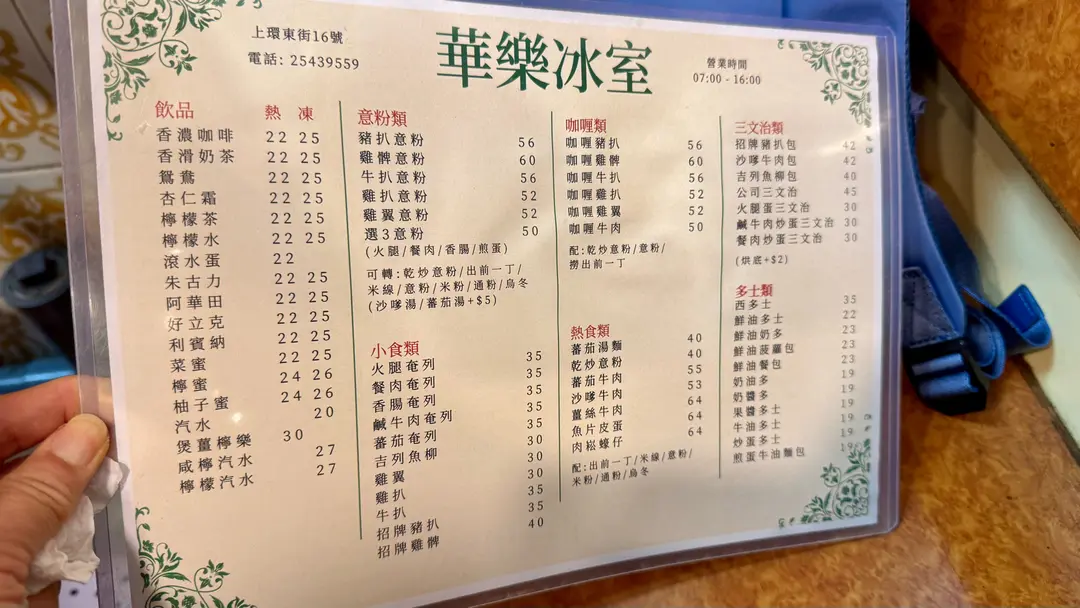 上環東街16號
電話: 25439559
華樂冰室
營業時間
07:00 - 16:00
飲品 熱 凍
香濃咖啡 22 25
香滑奶茶 22 25
鴛鴦 22 25
杏仁霜 22 25
檸檬茶 22 25
檸檬水 22 25
滾水蛋 22
朱古力 22 25
阿華田 22 25
好立克 22 25
利賓納 22 25
菜蜜 22 25
檸蜜 24 26
柚子蜜 24 26
汽水 20
煲薑檸樂 30
咸檸汽水 27
檸檬汽水 27
意粉類
豬扒意粉 56
雞髀意粉 60
牛扒意粉 56
雞扒意粉 52
雞翼意粉 52
選3意粉 50
(火腿/餐肉/香腸/煎蛋)
可轉:乾炒意粉/出前一丁/
米線/意粉/米粉/通粉/烏冬
(沙嗲湯/蕃茄湯+$5)
小食類
火腿奄列 35
餐肉奄列 35
香腸奄列 35
鹹牛肉奄列 35
蕃茄奄列 35
吉列魚柳 30
雞翼 30
雞扒 30
牛扒 35
招牌豬扒 35
招牌雞髀 40
咖喱類
咖喱豬扒 56
咖喱雞髀 60
咖喱牛扒 56
咖喱雞扒 52
咖喱雞翼 52
咖喱牛肉 50
配:乾炒意粉/意粉/
撈出前一丁
熱食類
蕃茄湯麵 40
乾炒意粉 40
蕃茄牛肉 55
沙嗲牛肉 53
薑絲牛肉 64
魚片皮蛋 64
肉崧蠔仔
配:出前一丁/米線/意粉/
米粉/通粉/烏冬
三文治類
招牌豬扒包 42
沙嗲牛肉包 42
吉列魚柳包 40
公司三文治 45
火腿蛋三文治 30
鹹牛肉炒蛋三文治 30
餐肉炒蛋三文治 30
(烘底+$2)
多士類
西多士 35
鮮油多士 22
鮮油奶多 23
鮮油菠蘿包 23
鮮油餐包 23
奶油多 19
奶醬多 19
果醬多士 19
牛油多士 19
炒蛋多士 19
煎蛋牛油麵包